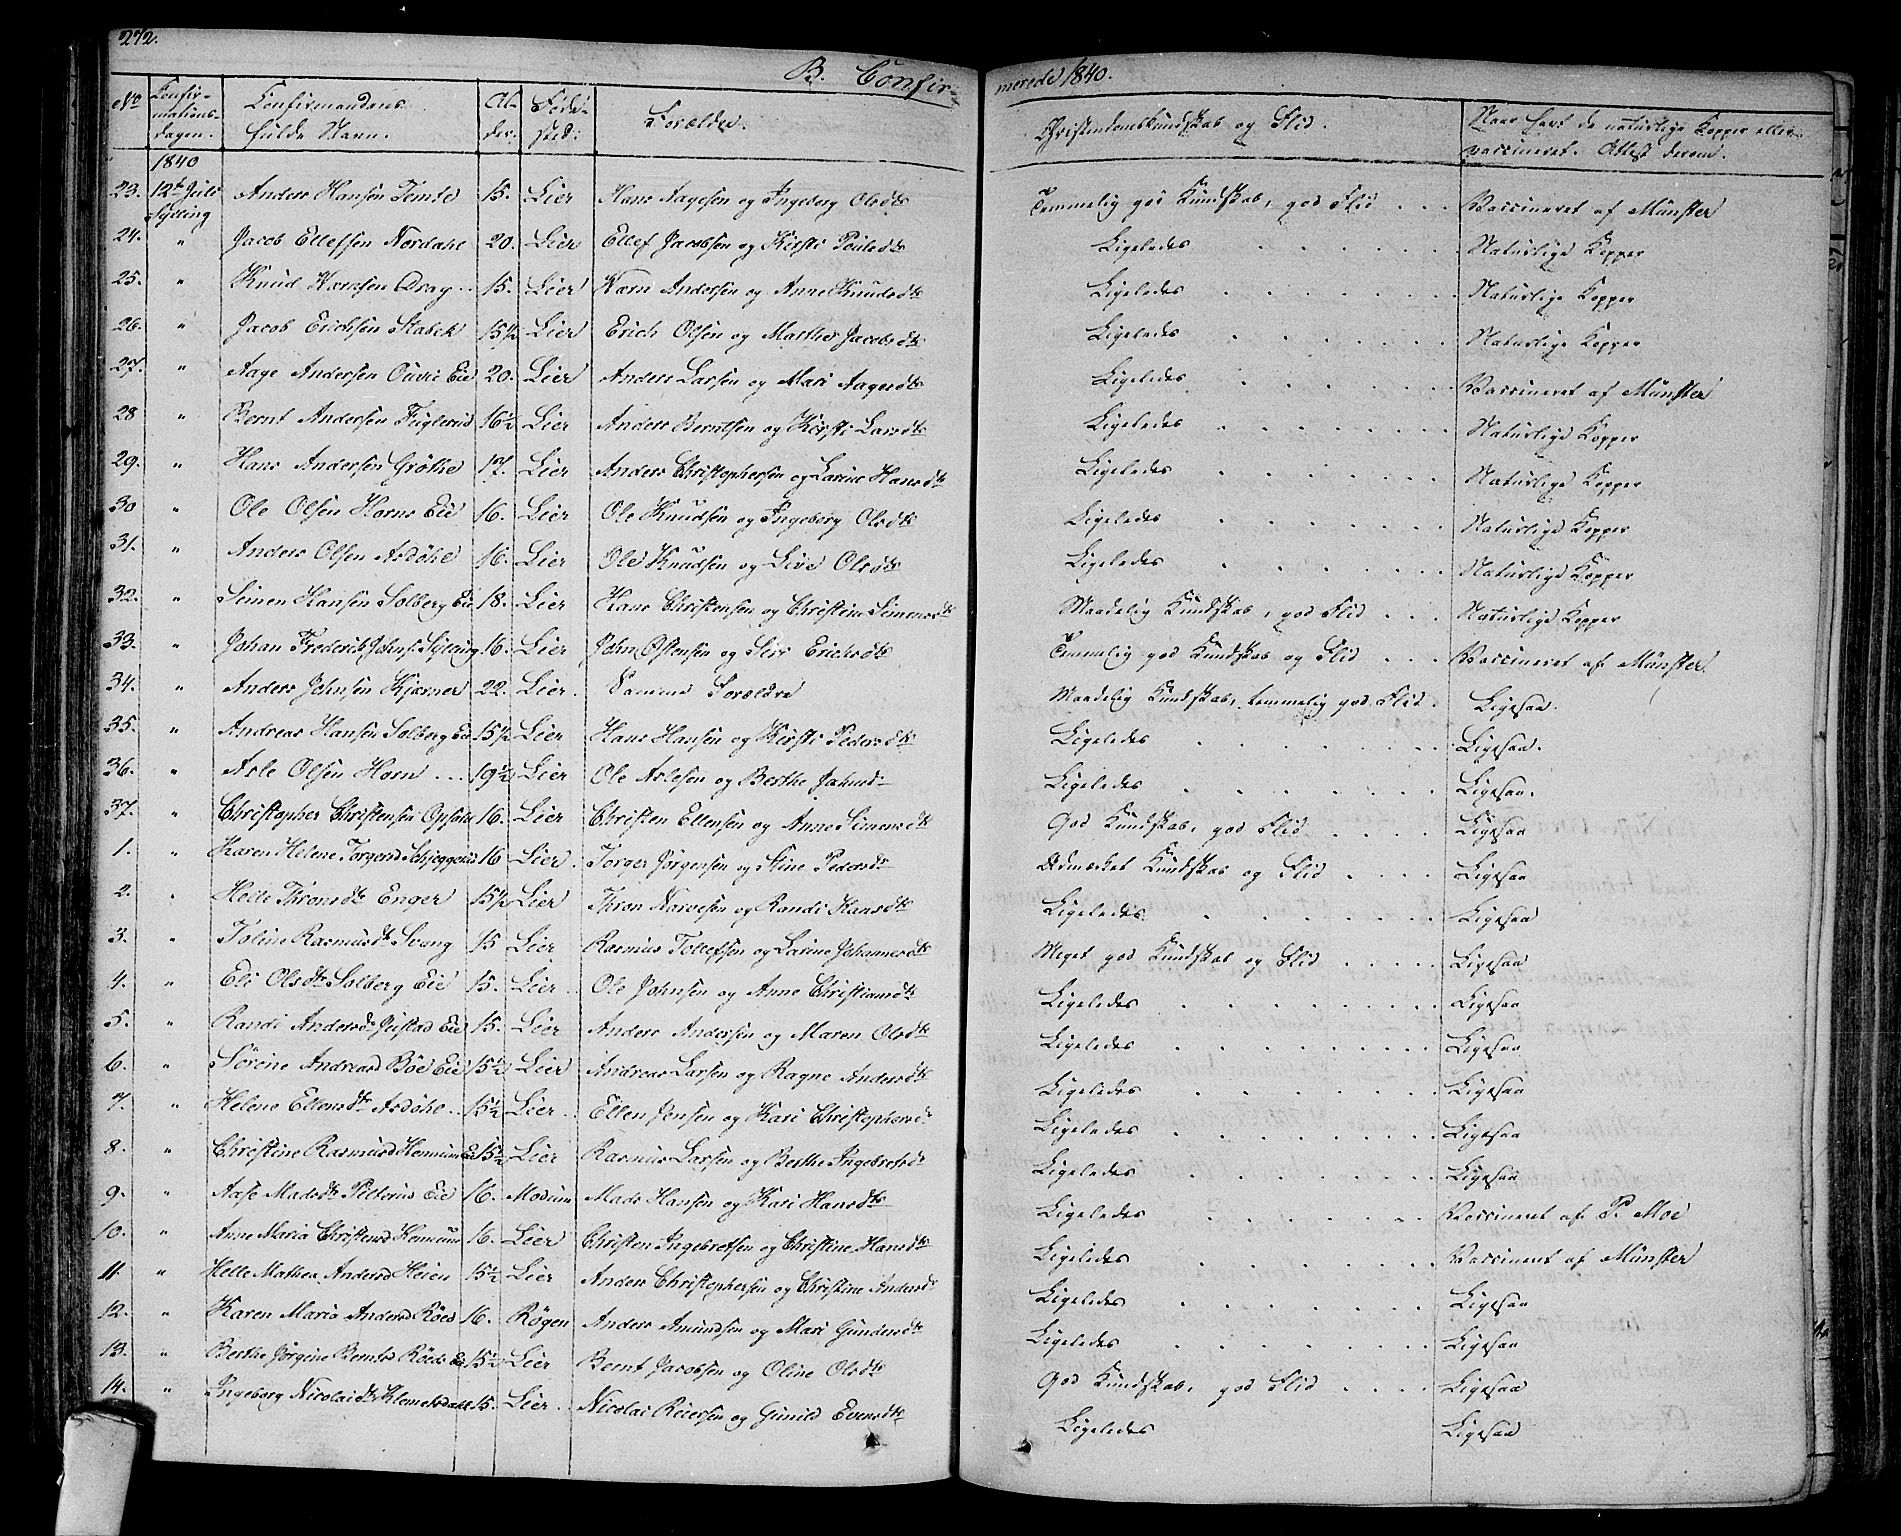 272.
B. Confirmerede 1840.
No Confirmations-dagen. Confirmandens fulde Navn. Alder. Fødested. Forældre. Christendomskundskab og Flid. Naar havt de naturlige Kopper eller vaccineret. Attest derom.
1840
23. 12te Juli Sylling Anders Hansen Temte 15. Lier Hans Aagesen og Ingeborg Olsdtr Temmelig god Kundskab, god Flid Vaccineret af Münster
24. " Jacob Ellefsen Nordahl 20. Lier Ellef Jacobsen og Kirsti Pouelsdtr Ligeledes Naturlige Kopper
25. " Knud Narnsen Drag 15. Lier Narn Andersen og Anne Knudsdtr Ligeledes Naturlige Kopper
26. " Jacob Erichsen Stabek 15½ Lier Erich Olsen og Marthe Jacobsdtr Ligeledes Naturlige Kopper
27. " Aage Andersen Ouvie Eie 20. Lier Anders Larsen og Mari Aagesdtr Ligeledes Vaccineret af Münster
28 " Bernt Andersen Fuglerud 16½ Lier Anders Berntsen og Kirsti Larsdtr Ligeledes Naturlige Kopper
29. " Hans Andersen Grøthe 17. Lier Anders Christophersen og Larine Hansdtr Ligeledes Naturlige Kopper
30 " Ole Olsen Horns Eie 16. Lier Ole Knudsen og Ingeborg Olsdtr Ligeledes Naturlige Kopper
31. " Anders Olsen Asdøhl 16. Lier Ole Knudsen og Live Olsdtr Ligeledes Naturlige Kopper
32. " Simen Hansen Solberg Eie 18. Lier Hans Christensen og Christine Simensdtr Maadelig Kundskab, god Flid Naturlige Kopper
33. " Johan Frederik Johns. Sylling 16. Lier John Ostensen og Siri Erichsdtr Temmelig god Kundskab og Flid Vaccineret af Münster
34. " Anders Johnsen Kjærner 22. Lier. Samme Forældre Maadelig Kundskab, temmelig god Flid. Ligesaa.
35. " Andreas Hansen Solberg Eie 15½ Lier Hans Hansen og Kirsti Pedersdtr Ligeledes Ligesaa.
36. " Asle Olsen Horn 19½ Lier Ole Aslesen og Berthe Johnsd Ligeledes Ligesaa.
37. " Christopher Christensen Opsahl 16. Lier Christen Ellensen og Anne Simensdtr God Kundskab, god Flid Ligesaa
1. " Karen Helene Torgersd Schjeggerud 16 Lier. Torger Jørgensen og Stine Pedersdtr Udmærket Kundskab og Flid Ligesaa
2. " Helle Thronsdtr Enger 15½ Lier Thron Narvesen og Randi Hansdtr Ligeledes Ligesaa
3. " Toline Rasmusdtr Svang 15 Lier Rasmus Tollefsen og Larine Johannesdtr Meget god Kundskab og Flid Ligesaa
4. " Eli Olsdtr Solberg Eie 15. Lier. Ole Johnsen og Anne Christiansdtr Ligeledes Ligesaa
5. " Randi Andersdtr Jeistad Eie 15. Lier Anders Andersen og Maren Olsdtr Ligeledes Ligesaa
6. " Sørine Andreasd Bøe Eie 15½ Lier Andreas Larsen og Ragne Andersdtr Ligeledes Ligesaa
7. " Helene Ellensdtr Asdøhl 15½ Lier Ellen Jensen og Kari Christophersd Ligeledes Ligesaa
8. " Christine Rasmusd Hennum E. 15½ Lier Rasmus Larsen og Berthe Ingebretsd Ligeledes Ligesaa
9. " Aase Madsdtr Pilterud Eie 16. Modum Mads Hansen og Kari Hansdtr Ligeledes Vaccineret af P. Moe
10. " Anne Maria Christensd Hennum 16. Lier Christen Ingebretsen og Christine Hansdtr Ligeledes Vaccineret af Münster
11. " Helle Mathea Andersd Heien 15½ Lier Anders Christophersen og Christine Andersd Ligeledes Ligesaa
12. " Karen Maria Andersd Røed 16. Røgen Anders Amundsen og Mari Gundersdtr Ligeledes Ligesaa
13. " Berthe Jørgine Berntsd Røeds E. 15½ Lier Bernt Jacobsen og Oline Olsdtr God Kundskab, god Flid Ligesaa
14. " Ingeborg Nicolaidtr Klemetsdahl 15. Lier Nicolai Reiersen og Gunild Evensdtr Ligeledes Ligesaa